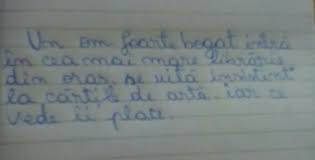 Un om foarte bogat intră
în cea mai mare librărie
din oraș, se uită insistent
la cărțile de artă, iar ce
vede îi place.